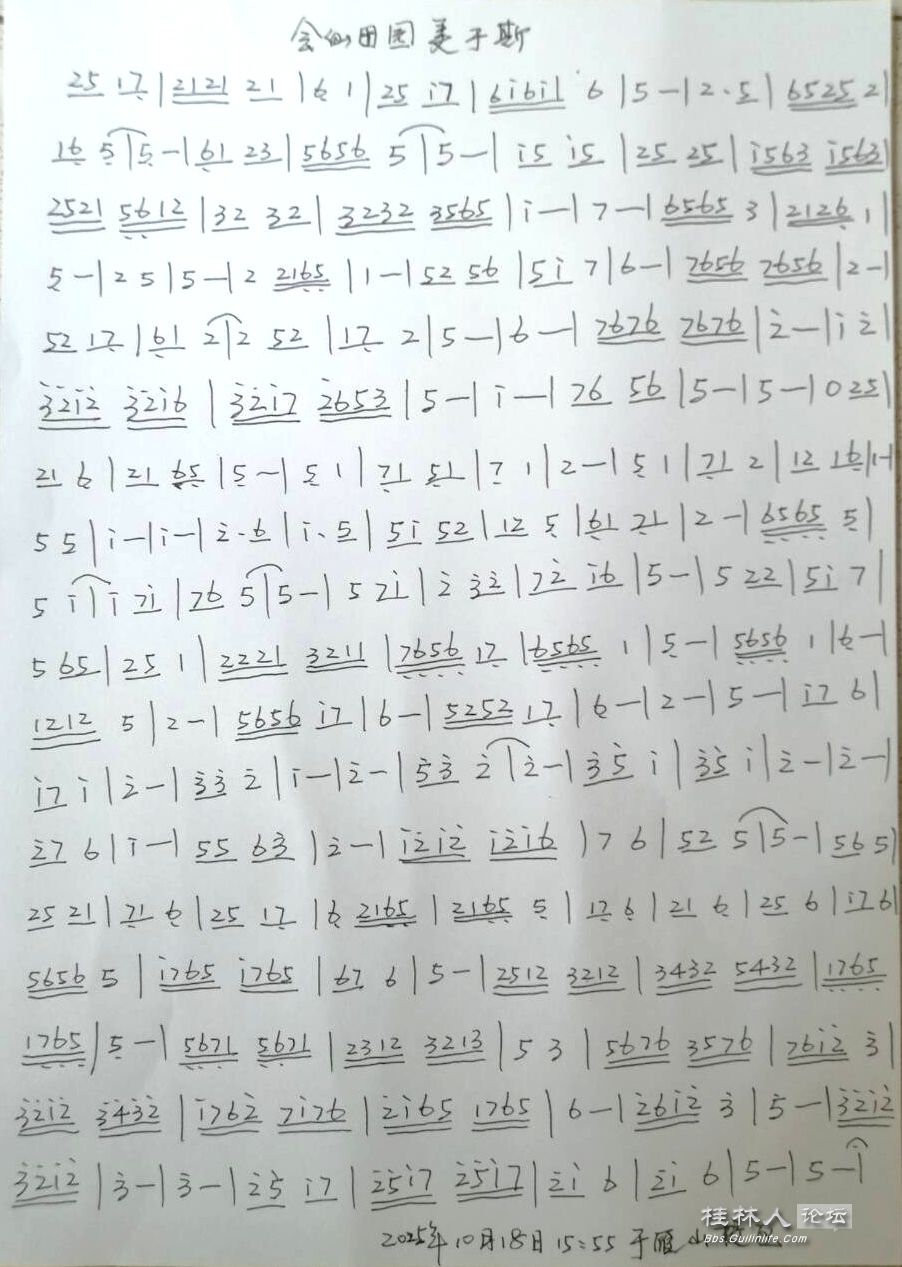 会仙田园美于斯
25 17 | 2121 21 | 6 1 | 25 i7 | 6i6i 6 | 5 - | 2 · 5 | 6525 2 |
16 5 | 5 - | 61 23 | 5656 5 | 5 - | i5 i5 | 25 25 | i563 i563 |
2521 5612 | 32 32 | 3232 3565 | i - | 7 - | 6565 3 | 2126 1 |
5 - | 2 5 | 5 - | 2 2165 | 1 - | 52 56 | 5i 7 | 6 - | 7656 7656 | 2 - |
52 17 | 61 2 | 2 52 | 17 2 | 5 - | 6 - | 7676 7676 | 2̇ - | i 2̇ |
3̇2̇i2̇ 3̇2̇i6 | 3̇2̇i7 2̇653 | 5 - | i - | 76 56 | 5 - | 5 - | 0 25 |
21 6 | 21 65 | 5 - | 5 1 | 71 51 | 7 1 | 2 - | 5 1 | 71 2 | 12 16 | 1 - |
5 5 | i - | i - | 2̇ · 6 | i · 5 | 5i 52 | 12 5 | 61 21 | 2 - | 6565 5 |
5 i | i 7i | 76 5 | 5 - | 5 7i | 2̇ 3̇2̇ | 72̇ i6 | 5 - | 5 22 | 5i 7 |
5 65 | 25 1 | 2221 3211 | 7656 17 | 6565 1 | 5 - | 5656 1 | 6 - |
1212 5 | 2 - | 5656 i7 | 6 - | 5252 17 | 6 - | 2 - | 5 - | i7 6 |
i7 i | 2̇ - | 3̇3̇ 2̇ | i - | 2̇ - | 5̇3̇ 2̇ | 2̇ - | 3̇5̇ i | 3̇5̇ i | 2̇ - | 2̇ - |
2̇7 6 | i - | 55 63̇ | 2̇ - | i2̇i2̇ i2̇i6 | 7 6 | 52 5 | 5 - | 56 5 |
25 21 | 71 6 | 25 17 | 6 2165 | 2165 5 | 17 6 | 21 6 | 25 6 | i7 6 |
5656 5 | i765 i765 | 67 6 | 5 - | 2512 3212 | 3432 5432 | 1765
1765 | 5 - | 5671 5671 | 2312 3213 | 5 3 | 5676 3576 | 76i2̇ 3̇ |
3̇2̇i2̇ 3̇4̇3̇2̇ | i762̇ 7i76 | 2̇i65 1765 | 6 - | 2̇6i2̇ 3̇ | 5̇ - | 3̇2̇i2̇
3̇2̇i2̇ | 3̇ - | 3̇ - | 2̇5̇ i7 | 2̇5̇i7 2̇5̇i7 | 2̇i 6 | 2̇i 6 | 5 - | 5 - |
2025年10月18日15:55于雁山
桂林人论坛
Bbs.Guilinlife.Com